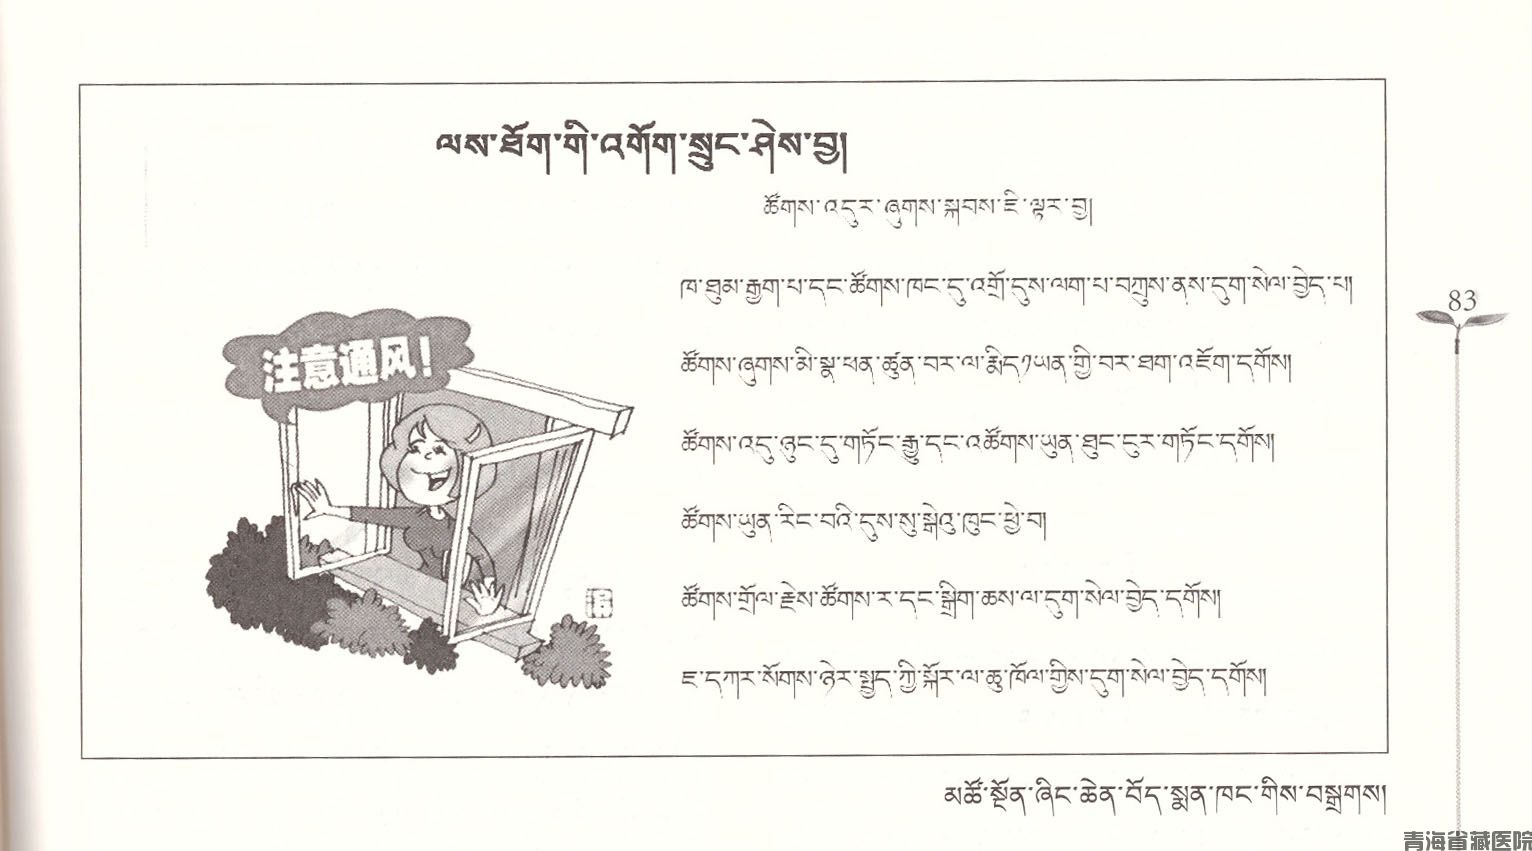 ལས་ཐོག་གི་འགོག་སྲུང་ཤེས་བྱ།
ཚོགས་འདུར་ཞུགས་སྐབས་ཇི་ལྟར་བྱ།
ཁ་ཐུམ་རྒྱག་པ་དང་ཚོགས་ཁང་དུ་འགྲོ་དུས་ལག་པ་བཀྲུས་ནས་དུག་སེལ་བྱེད་པ།
注意通风！
ཚོགས་ཞུགས་མི་སྣ་ཕན་ཚུན་བར་ལ་རྨིད༡ཡན་གྱི་བར་ཐག་འཇོག་དགོས།
ཚོགས་འདུ་ཉུང་དུ་གཏོང་རྒྱུ་དང་འཚོགས་ཡུན་ཐུང་ངུར་གཏོང་དགོས།
ཚོགས་ཡུན་རིང་བའི་དུས་སུ་སྒེའུ་ཁུང་ཕྱེ་བ།
ཚོགས་གྲོལ་རྗེས་ཚོགས་ར་དང་སྒྲིག་ཆས་ལ་དུག་སེལ་བྱེད་དགོས།
ཇ་དཀར་སོགས་ཉེར་སྤྱད་ཀྱི་སྐོར་ལ་ཆུ་ཁོལ་གྱིས་དུག་སེལ་བྱེད་དགོས།
མཚོ་སྔོན་ཞིང་ཆེན་བོད་སྨན་ཁང་གིས་བསྒྲགས།
83
青海省藏医院